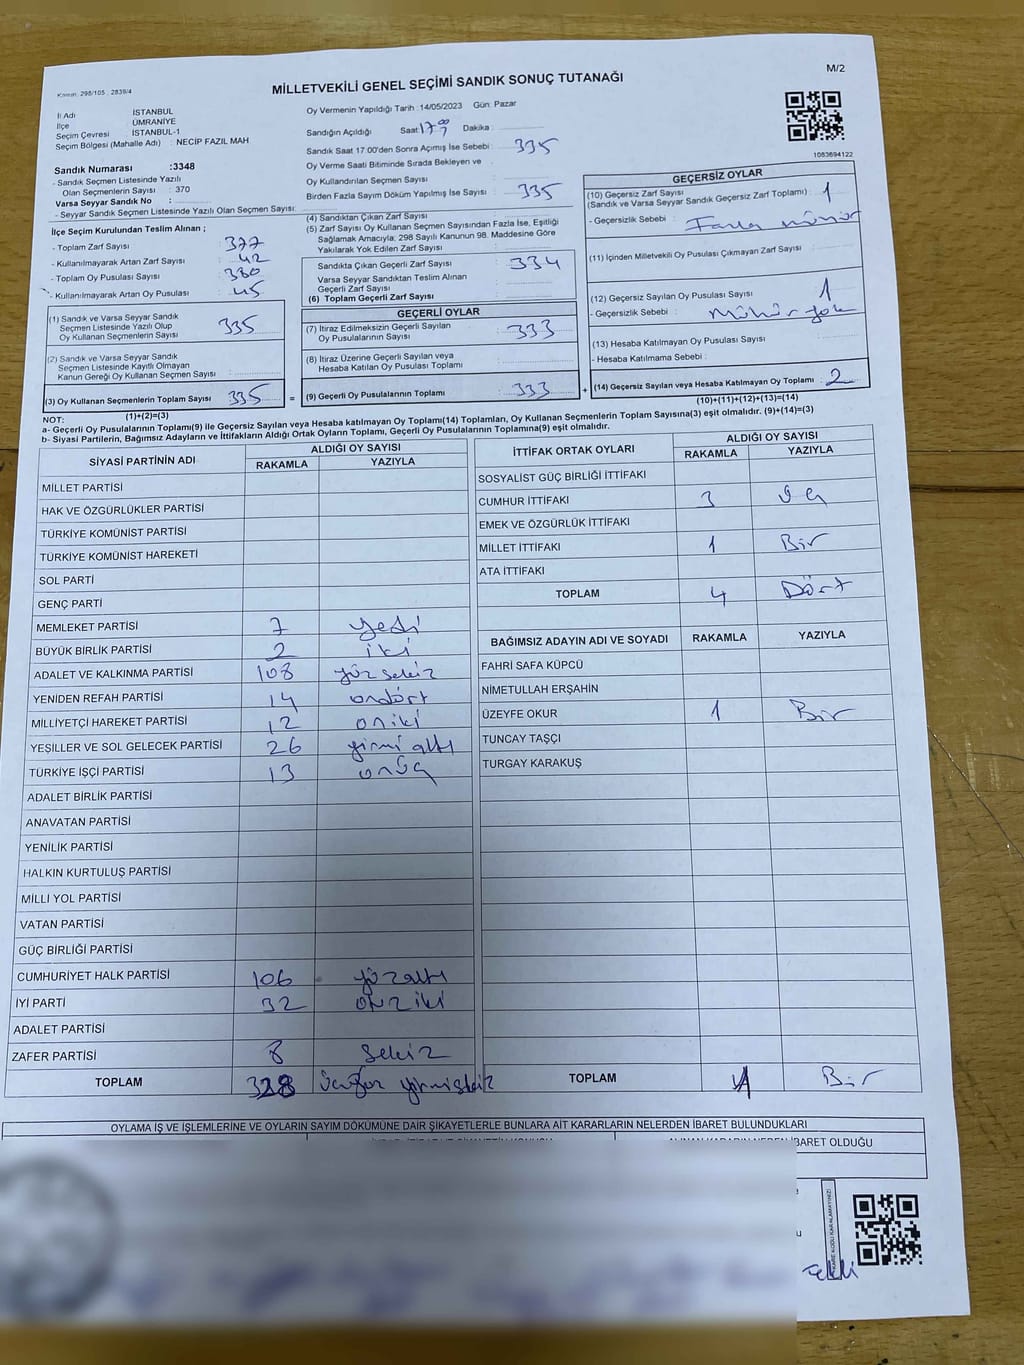 Kanun: 298/105 , 2839/4
MİLLETVEKİLİ GENEL SEÇİMİ SANDIK SONUÇ TUTANAĞI
M/2
İl Adı İSTANBUL
İlçe ÜMRANİYE
Seçim Çevresi İSTANBUL-1
Seçim Bölgesi (Mahalle Adı) : NECİP FAZIL MAH
Sandık Numarası :3348
- Sandık Seçmen Listesinde Yazılı
Olan Seçmenlerin Sayısı : 370
Varsa Seyyar Sandık No :
- Seyyar Sandık Seçmen Listesinde Yazılı Olan Seçmen Sayısı:
Oy Vermenin Yapıldığı Tarih :14/05/2023 Gün: Pazar
Sandığın Açıldığı Saat 17:00 Dakika :
Sandık Saat 17.00'den Sonra Açımış İse Sebebi : 335
Oy Verme Saati Bitiminde Sırada Bekleyen ve
Oy Kullandırılan Seçmen Sayısı :
Birden Fazla Sayım Döküm Yapılmış İse Sayısı : 335
1083694122
İlçe Seçim Kurulundan Teslim Alınan ;
- Toplam Zarf Sayısı : 377
- Kullanılmayarak Artan Zarf Sayısı : 42
- Toplam Oy Pusulası Sayısı : 380
- Kullanılmayarak Artan Oy Pusulası : 45
(1) Sandık ve Varsa Seyyar Sandık
Seçmen Listesinde Yazılı Olup
Oy Kullanan Seçmenlerin Sayısı : 335
(2) Sandık ve Varsa Seyyar Sandık
Seçmen Listesinde Kayıtlı Olmayan
Kanun Gereği Oy Kullanan Seçmen Sayısı :
(3) Oy Kullanan Seçmenlerin Toplam Sayısı : 335
(1)+(2)=(3)
(4) Sandıktan Çıkan Zarf Sayısı :
(5) Zarf Sayısı Oy Kullanan Seçmen Sayısından Fazla İse, Eşitliği
Sağlamak Amacıyla; 298 Sayılı Kanunun 98. Maddesine Göre
Yakılarak Yok Edilen Zarf Sayısı :
Sandıkta Çıkan Geçerli Zarf Sayısı : 334
Varsa Seyyar Sandıktan Teslim Alınan
Geçerli Zarf Sayısı :
(6) Toplam Geçerli Zarf Sayısı :
GEÇERLİ OYLAR
(7) İtiraz Edilmeksizin Geçerli Sayılan
Oy Pusulalarının Sayısı : 333
(8) İtiraz Üzerine Geçerli Sayılan veya
Hesaba Katılan Oy Pusulası Toplamı :
= (9) Geçerli Oy Pusulalarının Toplamı : 333 +
GEÇERSİZ OYLAR
(10) Geçersiz Zarf Sayısı : 1
(Sandık ve Varsa Seyyar Sandık Geçersiz Zarf Toplamı)
- Geçersizlik Sebebi : Fazla mühür
(11) İçinden Milletvekili Oy Pusulası Çıkmayan Zarf Sayısı :
(12) Geçersiz Sayılan Oy Pusulası Sayısı : 1
- Geçersizlik Sebebi : Mühür yok
(13) Hesaba Katılmayan Oy Pusulası Sayısı :
- Hesaba Katılmama Sebebi :
(14) Geçersiz Sayılan veya Hesaba Katılmayan Oy Toplamı : 2
(10)+(11)+(12)+(13)=(14)
NOT:
a- Geçerli Oy Pusulalarının Toplamı(9) ile Geçersiz Sayılan veya Hesaba katılmayan Oy Toplamı(14) Toplamları, Oy Kullanan Seçmenlerin Toplam Sayısına(3) eşit olmalıdır. (9)+(14)=(3)
b- Siyasi Partilerin, Bağımsız Adayların ve İttifakların Aldığı Ortak Oyların Toplamı, Geçerli Oy Pusulalarının Toplamına(9) eşit olmalıdır.
SİYASİ PARTİNİN ADI ALDIĞI OY SAYISI
RAKAMLA YAZIYLA
MİLLET PARTİSİ
HAK VE ÖZGÜRLÜKLER PARTİSİ
TÜRKİYE KOMÜNİST PARTİSİ
TÜRKİYE KOMÜNİST HAREKETİ
SOL PARTİ
GENÇ PARTİ
MEMLEKET PARTİSİ 7 yedi
BÜYÜK BİRLİK PARTİSİ 2 iki
ADALET VE KALKINMA PARTİSİ 108 yüz sekiz
YENİDEN REFAH PARTİSİ 14 ondört
MİLLİYETÇİ HAREKET PARTİSİ 12 oniki
YEŞİLLER VE SOL GELECEK PARTİSİ 26 yirmi altı
TÜRKİYE İŞÇİ PARTİSİ 13 onüç
ADALET BİRLİK PARTİSİ
ANAVATAN PARTİSİ
YENİLİK PARTİSİ
HALKIN KURTULUŞ PARTİSİ
MİLLİ YOL PARTİSİ
VATAN PARTİSİ
GÜÇ BİRLİĞİ PARTİSİ
CUMHURİYET HALK PARTİSİ 106 yüzaltı
İYİ PARTİ 32 otuziki
ADALET PARTİSİ
ZAFER PARTİSİ 8 sekiz
TOPLAM 328 üçyüz yirmisekiz
İTTİFAK ORTAK OYLARI ALDIĞI OY SAYISI
RAKAMLA YAZIYLA
SOSYALİST GÜÇ BİRLİĞİ İTTİFAKI
CUMHUR İTTİFAKI 3 üç
EMEK VE ÖZGÜRLÜK İTTİFAKI
MİLLET İTTİFAKI 1 Bir
ATA İTTİFAKI
TOPLAM 4 Dört
BAĞIMSIZ ADAYIN ADI VE SOYADI RAKAMLA YAZIYLA
FAHRİ SAFA KÜPCÜ
NİMETULLAH ERŞAHİN
ÜZEYFE OKUR 1 Bir
TUNCAY TAŞÇI
TURGAY KARAKUŞ
TOPLAM 1 Bir
OYLAMA İŞ VE İŞLEMLERİNE VE OYLARIN SAYIM DÖKÜMÜNE DAİR ŞİKAYETLERLE BUNLARA AİT KARARLARIN NELERDEN İBARET BULUNDUKLARI
İBARET OLDUĞU
KARE KODU KARALAMAYINIZ!